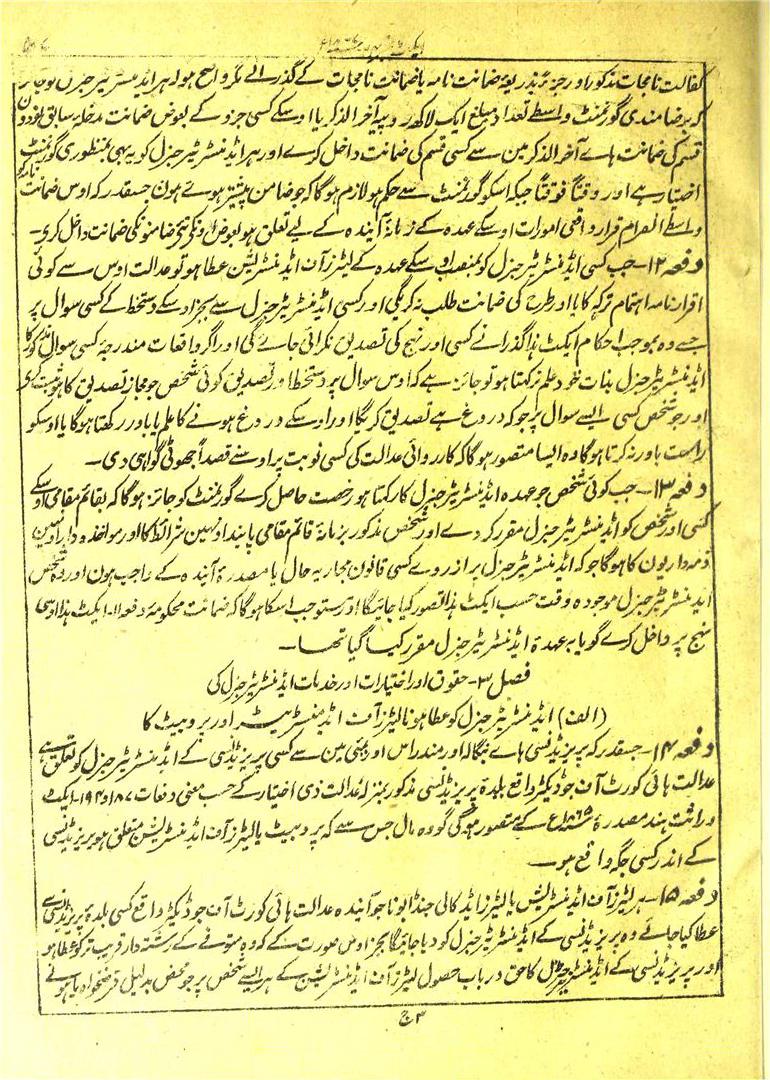 کفالت نامجات مذکور اور جزءً بذریعہ ضمانت نامہ یا ضمانت نامجات کے گذرانے مگر واضح ہو کہ ہر ایڈمنسٹریٹر جنرل کو
کہ برضامندی گورنمنٹ واسطے تعداد مبلغ ایک لاکھ روپیہ آخر الذکر یا اوسکے کسی جزو کے بعوض ضمانت مدخلہ سابق
قسم کی ضمانت ہاے آخر الذکر مین سے کسی قسم کی ضمانت داخل کرے اور ہر ایڈمنسٹریٹر جنرل کو یہ بھی بمنظوری گورنمنٹ
اختیار ہے اور وقتاً فوقتاً جبکہ اسکو گورنمنٹ سے حکم ہو لازم ہوگا کہ جو ضامن پیشتر ہوے ہون جسقدر کہ اوس ضمانت
واسطے انصرام قرار واقعی امورات اوسکے عہدہ کے زمانہ آیندہ کے لیے تعلق ہو بعوض اونکی نئی ضامنونکی ضمانت داخل کرے۔
دفعہ ۱۲۔ جب کسی ایڈمنسٹریٹر جنرل کو بمنصب اوسکے عہدہ کے لیٹرز آف ایڈمنسٹریشن عطا ہو تو عدالت اوس سے کوئی
اقرار نامہ اہتمام ترکہ کا یا اور طرح کی ضمانت طلب نہ کریگی اور کسی ایڈمنسٹریٹر جنرل سے بجز اوسکے دستخط کے کسی سوال پر
جسے وہ بموجب احکام ایکٹ ہذا گذرانے کسی اور نہج کی تصدیق نکرائی جاے گی اور اگر واقعات مندرجہ کسی سوال مذکور کا
ایڈمنسٹریٹر جنرل بذات خود علم نرکھتا ہو تو جائز ہے کہ اوس سوال پر دستخط اور تصدیق کوئی شخص جو مجاز تصدیق کا ہو ثبت کرے
اور جو شخص کسی ایسے سوال پر جو کہ دروغ ہے تصدیق کریگا اور اوسکے دروغ ہونے کا علم یا باور رکھتا ہوگا یا اوسکو
راست باور نہ کرتا ہوگا وہ ایسا متصور ہوگا کہ کارروائی عدالت کی کسی نوبت پر اوسنے قصداً جھوٹی گواہی دی۔
دفعہ ۱۳۔ جب کوئی شخص جو عہدہ ایڈمنسٹریٹر جنرل کا رکھتا ہو رخصت حاصل کرے گورنمنٹ کو جائز ہوگا کہ بقائم مقامی اوسکے
کسی اور شخص کو ایڈمنسٹریٹر جنرل مقرر کر دے اور شخص مذکور بزمانہ قائم مقامی پابند اونہین شرائط کا اور مواخذہ دار اونہین
ذمہ داریون کا ہوگا جو کہ ایڈمنسٹریٹر جنرل پر از روے کسی قانون مجاریہ حال یا مصدرہ آیندہ کے واجب ہون اور وہ شخص
ایڈمنسٹریٹر جنرل موجودہ وقت حسب ایکٹ ہذا تصور کیا جائیگا اور مستوجب اسکا ہوگا کہ ضمانت محکومہ دفعہ ۱۱۔ ایکٹ ہذا اوسی
نہج پر داخل کرے گویا بہ عہدہ ایڈمنسٹریٹر جنرل مقرر کیا گیا تھا۔
فصل ۳۔ حقوق اور اختیارات اور خدمات ایڈمنسٹریٹر جنرل کی
(الف) ایڈمنسٹریٹر جنرل کو عطا ہونا لیٹرز آف ایڈمنسٹریشن اور پروبیٹ کا
دفعہ ۱۴۔ جسقدر کہ پریزیڈنسی ہاے بنگالہ اور مندراس اور بمبئی مین سے کسی پریزیڈنسی کے ایڈمنسٹریٹر جنرل کو تعلق ہے
عدالت ہائی کورٹ آف جوڈیکیچر واقع بلدہ پریزیڈنسی مذکور بمنزلہ عدالت ذی اختیار کے حسب معنی دفعات ۱۸۷ و ۱۹۴۔ ایکٹ
وراثت ہند مصدرہ ۱۸۶۵ء کے متصور ہوگی گو وہ مال جس سے کہ پروبیٹ یا لیٹرز آف ایڈمنسٹریشن متعلق ہو پریزیڈنسی
کے اندر کسی جگہ واقع ہو۔
دفعہ ۱۵۔ ہر لیٹرز آف ایڈمنسٹریشن یا لیٹرز ایڈ کالی جنڈا بونا جو آیندہ عدالت ہائی کورٹ آف جوڈیکیچر واقع کسی بلدہ پریزیڈنسی سے
عطا کیا جاے وہ پریزیڈنسی کے ایڈمنسٹریٹر جنرل کو دیا جائیگا بجز اوس صورت کے کہ وہ متوفے کے رشتہ دار قریب تر کو عطا ہو
اور پریزیڈنسی کے ایڈمنسٹریٹر جنرل کا حق در باب حصول لیٹرز آف ایڈمنسٹریشن کے ہر ایسے شخص پر جو محض بدلیل قرضخواہ یا ہونے
ج ۳